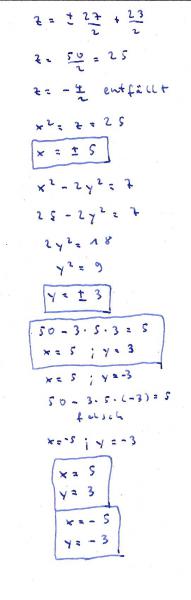 z = ± 27/2 + 23/2
z = 50/2 = 25
z = - 4/2 entfällt
x² = z = 25
x = ± 5
x² - 2y² = 7
25 - 2y² = 7
2y² = 18
y² = 9
y = ± 3
50 - 3 · 5 · 3 = 5
x = 5 ; y = 3
x = 5 ; y = -3
50 - 3 · 5 · (-3) = 5
falsch
x = -5 ; y = -3
x = 5
y = 3
x = - 5
y = - 3